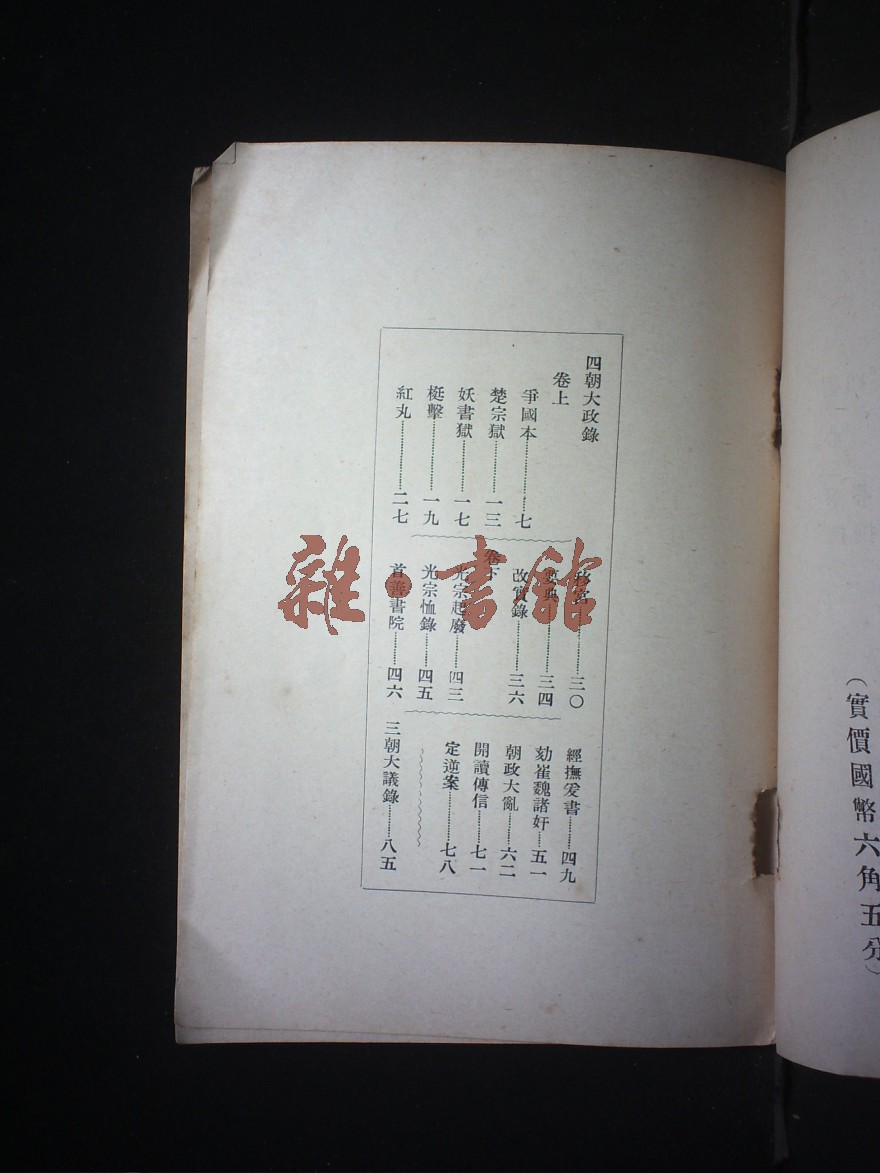 四朝大政錄
卷上
爭國本………七
楚宗獄………一三
妖書獄………一七
梃擊………一九
紅丸………二七
移宮………三〇
要典………三四
改實錄………三六
卷下
光宗起廢………四三
光宗恤錄………四五
首善書院………四六
經撫爰書………四九
劾崔魏諸奸………五一
朝政大亂………六二
開讀傳信………七一
定逆案………七八
三朝大議錄………八五
(實價國幣六角五分)
雜·書館